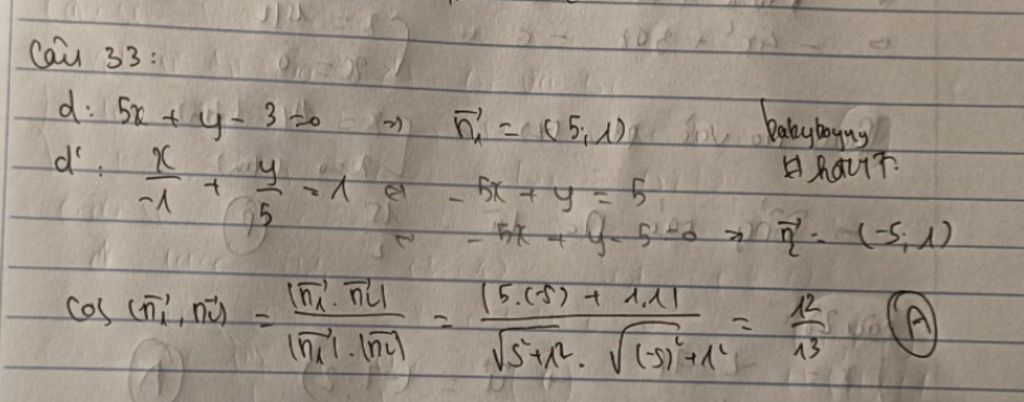 Câu 33:
d: 5x + y - 3 = 0 => n₁⃗ = (5; 1)
d': x/-1 + y/5 = 1 ⇔ -5x + y = 5
⇔ -5x + y - 5 = 0 => n₂⃗ = (-5; 1)
cos (n₁⃗, n₂⃗) = |n₁⃗ . n₂⃗| / |n₁⃗| . |n₂⃗| = |5.(-5) + 1.1| / √5²+1² . √(-5)²+1² = 12/13 Ⓐ